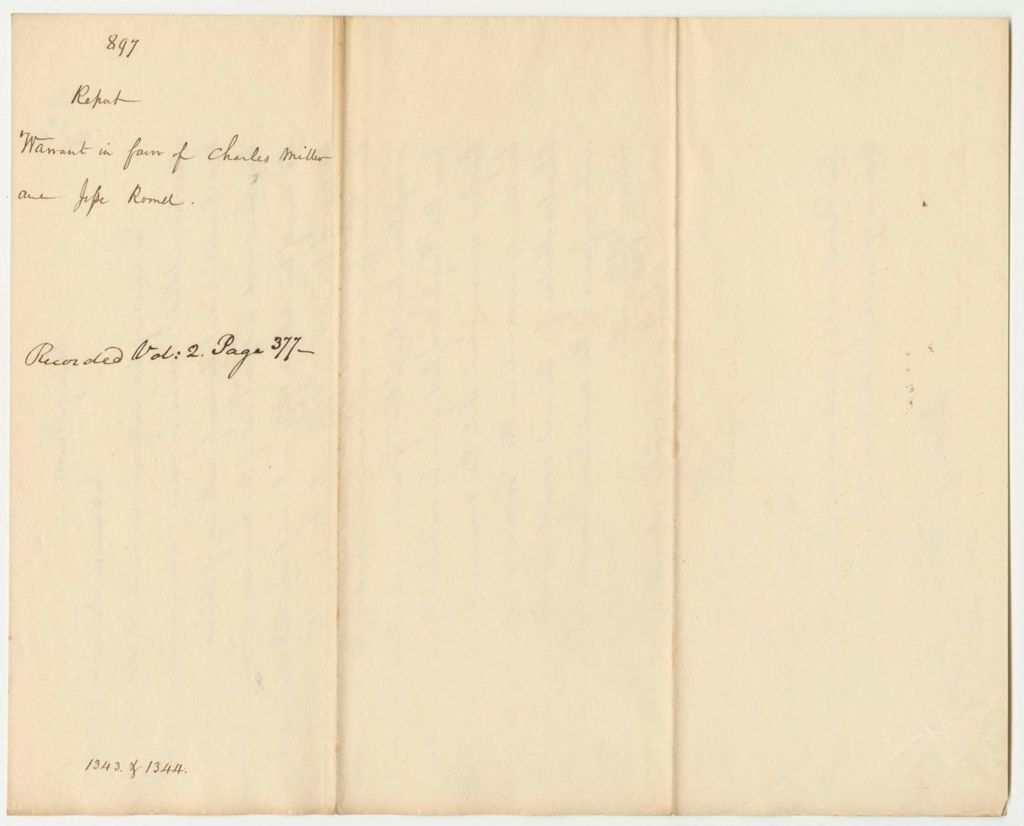 897
Report
Warrant in favor of Charles Miller
and Jesse Rowell.
Recorded Vol: 2. Page 377—
1343. & 1344.